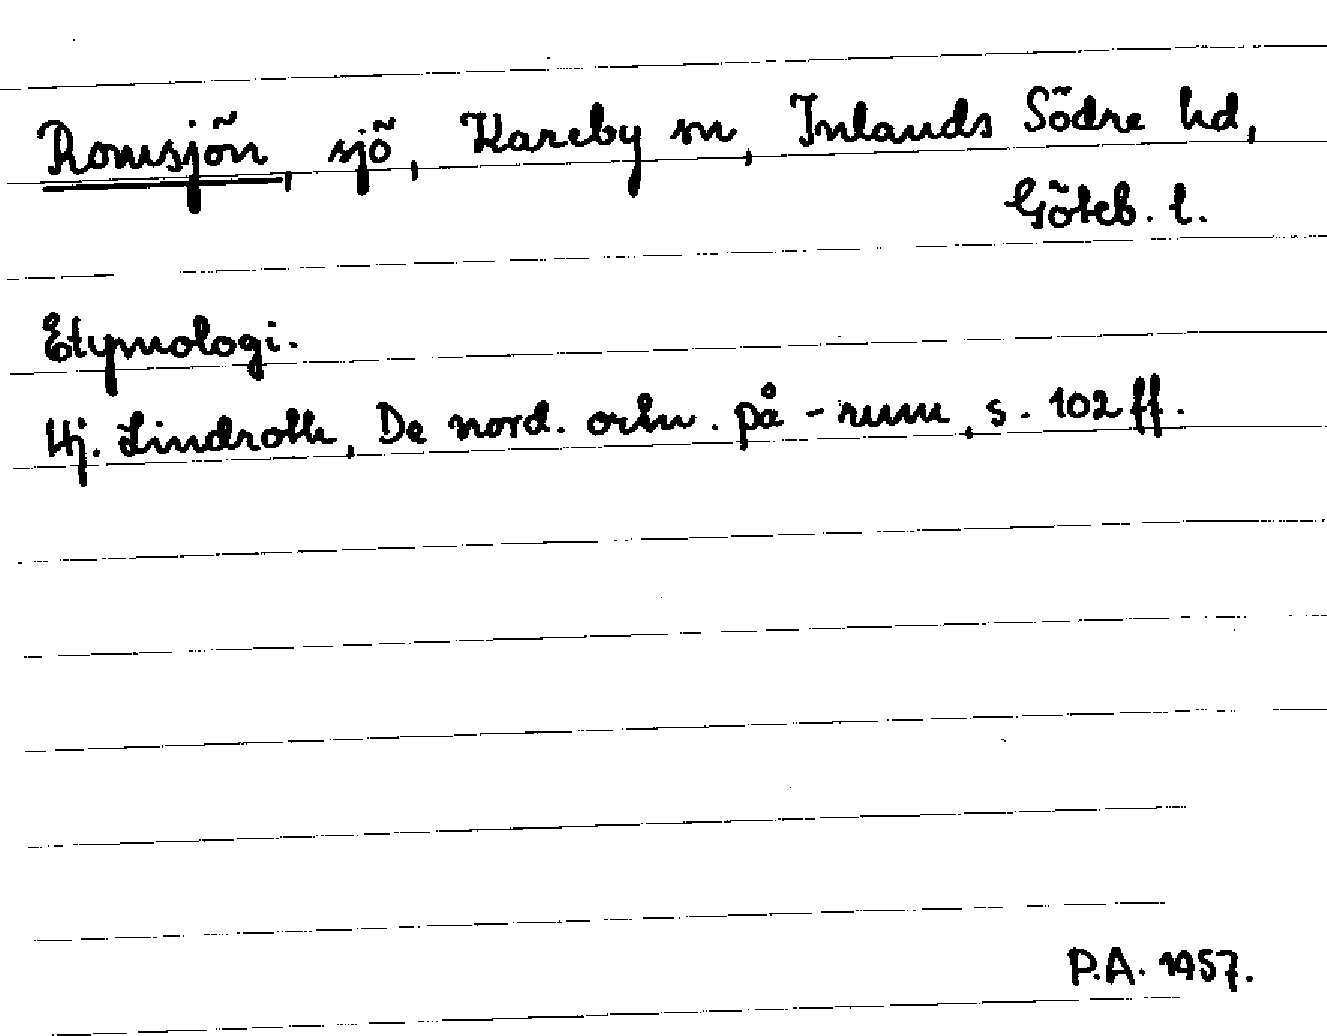 Romsjön, sjö, Kareby sn, Inlands Södre hd,
Göteb. l.
Etymologi.
Hj. Lindroth, De nord. ortn. på -rum, s. 102 ff.
P.A. 1957.